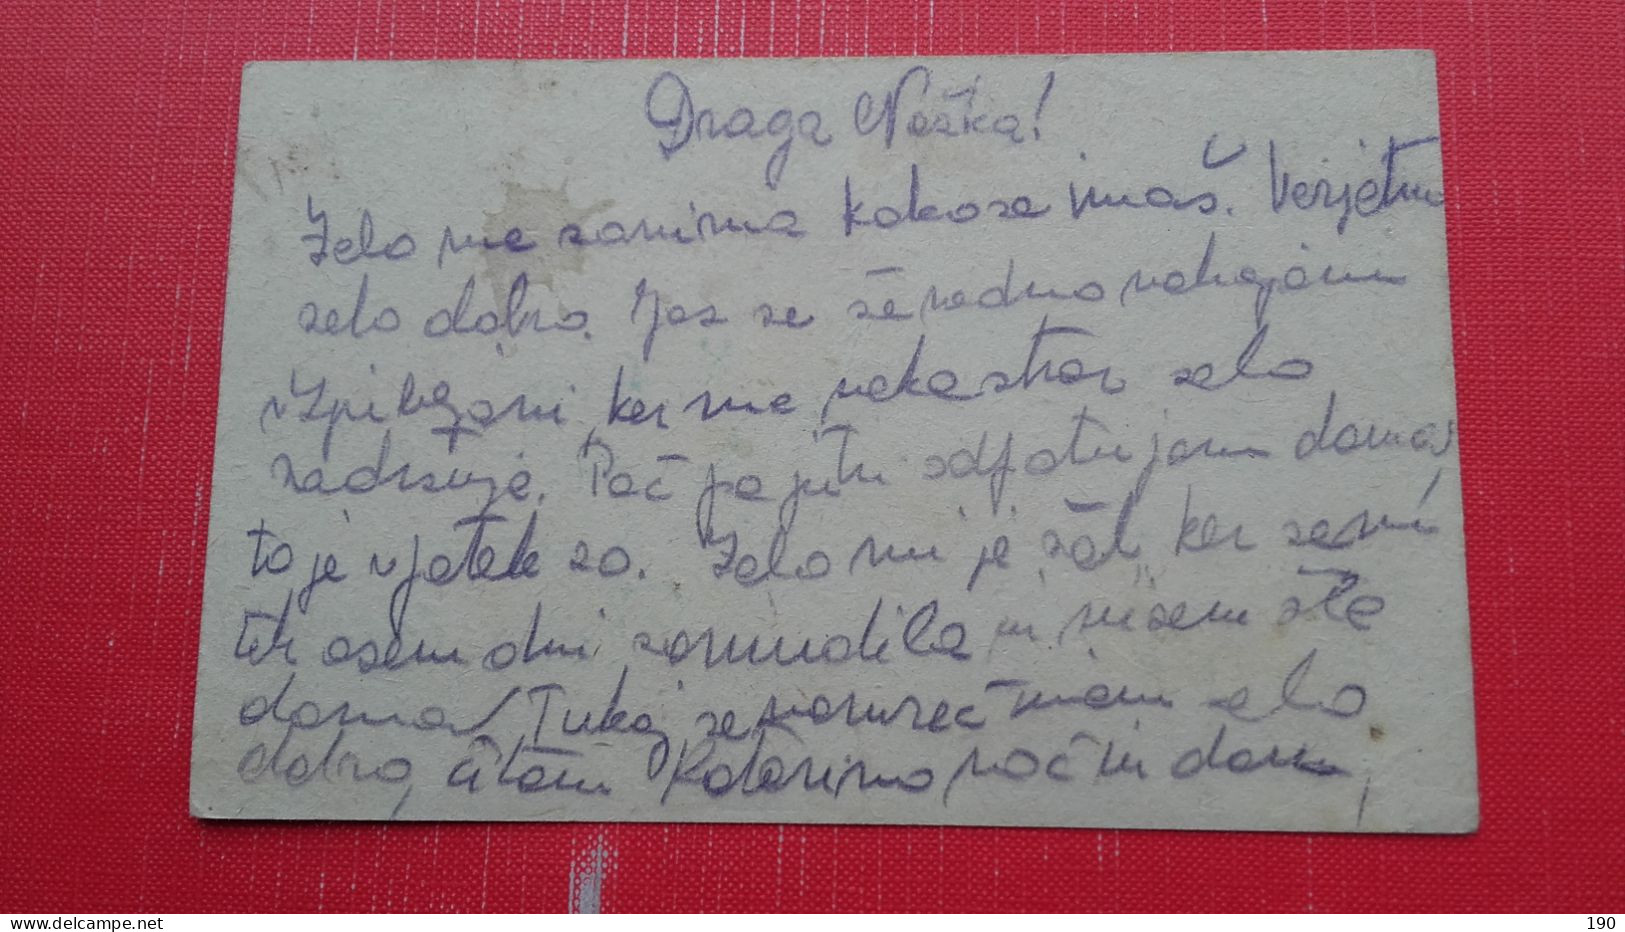 Draga Nežka!
Zelo me zanima kako se imaš. Verjetno
zelo dobro. Jaz se še vedno nahajam
v ker me neka stvar zelo
zadržuje. Pač pa jutri odpotujem domov,
to je v petek 20. Zelo mi je žal ker sem
teh osem dni zamudila in nisem šla
domov. Tukaj se imam zelo
dobro, čitam Katarino, noč in dan,
www.delcampe.net
190